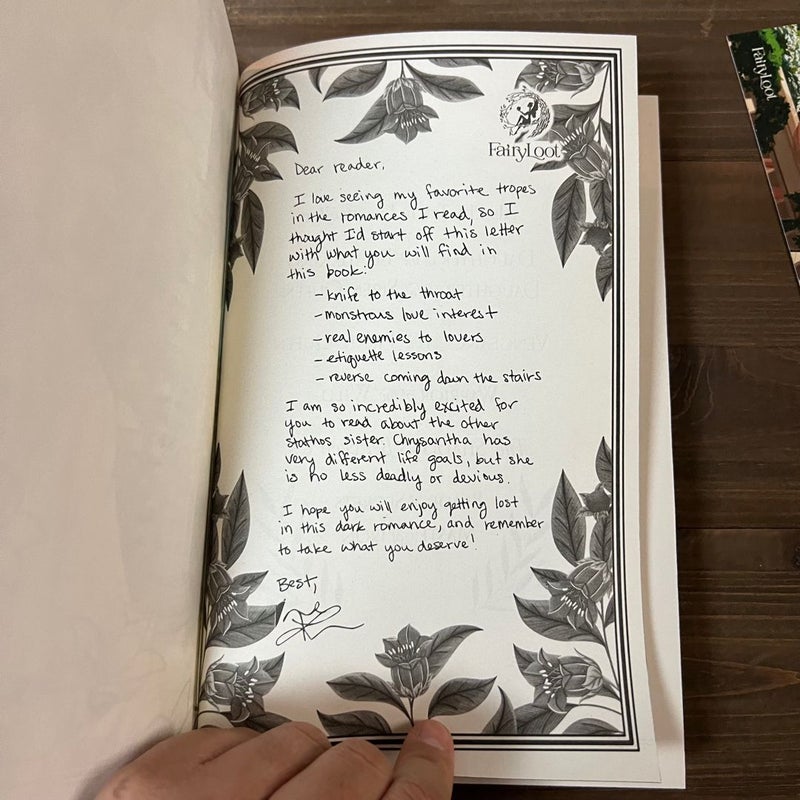 FairyLoot
FairyLoot
Dear reader,
I love seeing my favorite tropes
in the romances I read, so I
thought I'd start off this letter
with what you will find in
this book:
- knife to the throat
- monstrous love interest
- real enemies to lovers
- etiquette lessons
- reverse coming down the stairs
I am so incredibly excited for
you to read about the other
Stathos sister. Chrysantha has
very different life goals, but she
is no less deadly or devious.
I hope you will enjoy getting lost
in this dark romance, and remember
to take what you deserve!
Best,